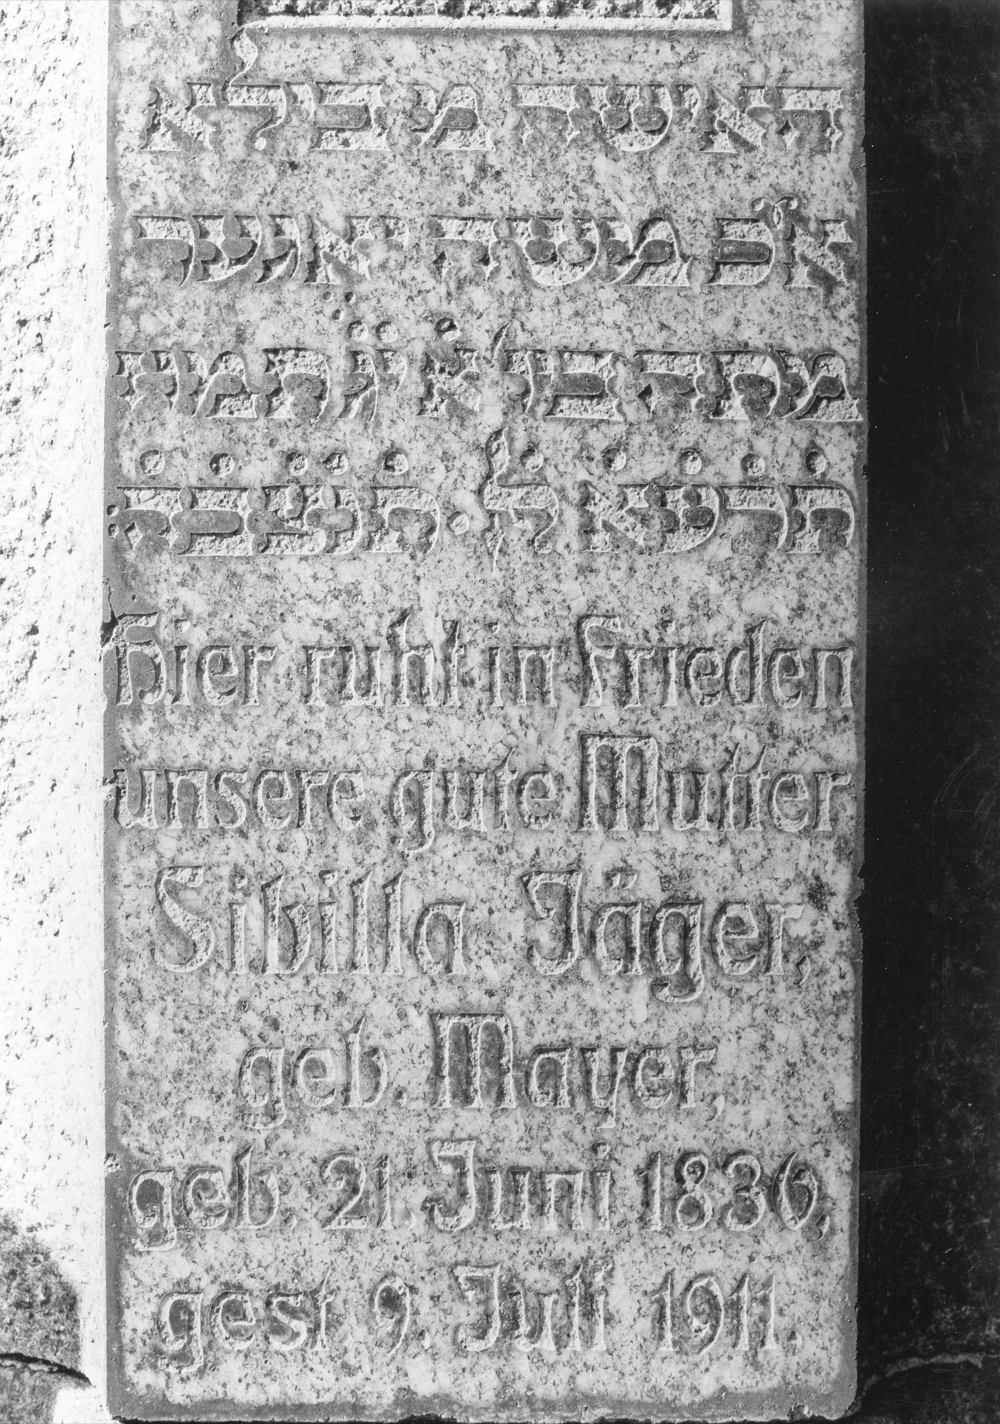 האישה מ בילא
אם משה יאגער
מתה ביום א̇ י̇ג̇ תמוז
ת̇ר̇ע̇א̇ לפ̇ק ת̇נ̇צ̇ב̇ה̇
Hier ruht in Frieden
unsere gute Mutter
Sibilla Jäger,
geb. Mayer,
geb. 21. Juni 1836,
gest 9. Juli 1911.